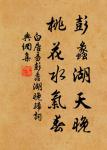 彭蠡湖天晚
桃花水氣春
白居易彭蠡湖晚歸詩
典網集